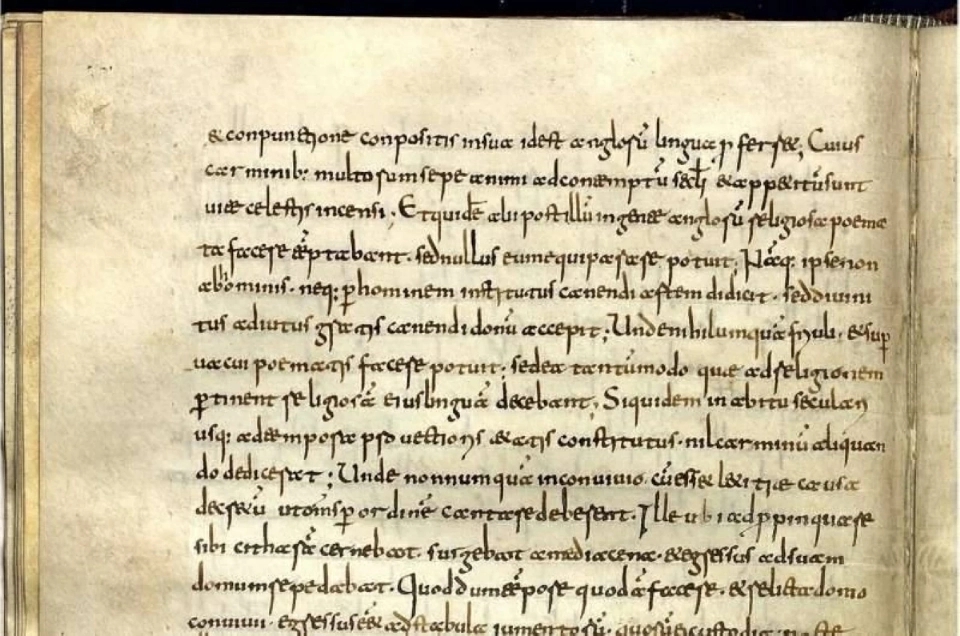 & conpunctione conpositis insua id est anglosũ lingua p ferr&; Cuius
carminib: multorum sepe animi adcontemptũ sęcli &appetitũ sunt
uitae celestis incensi. Et quidẽ alii post illũ ingente anglorũ religiosa poema
ta facere tẽptabant. sed nullus eum equiparare potuit; Nãq: ipse non
ab hominis. neq: p hominem institutus canendi artem didicit. sed diuini
tus adiutus gratis canendi donũ accepit; Unde nihil umquã friuoli. & sup
uacui poematis facere potuit; sed ea tantũmodo quae ad religionem
p tinent religiosã eius linguã decebant; Siquidem in abitu seculari
usq: ad tempora prouectioris &atis constitutus. nil carminũ aliquan
do dedicerat; Unde non numquã in conuiuio. cũ ess& laetitiae causa
decretũ ut oms p ordinẽ cantare deberent. Ille ubi adp pinquare
sibi citharã cernebat. surgebat a media cena. & egressus ad suam
domum sepe dabat. Quod dum tẽpore quodã facere. & relicta domo
conuiuii. egressus eẽ ad stabula iumentorũ. quorũ ei custodia nocte